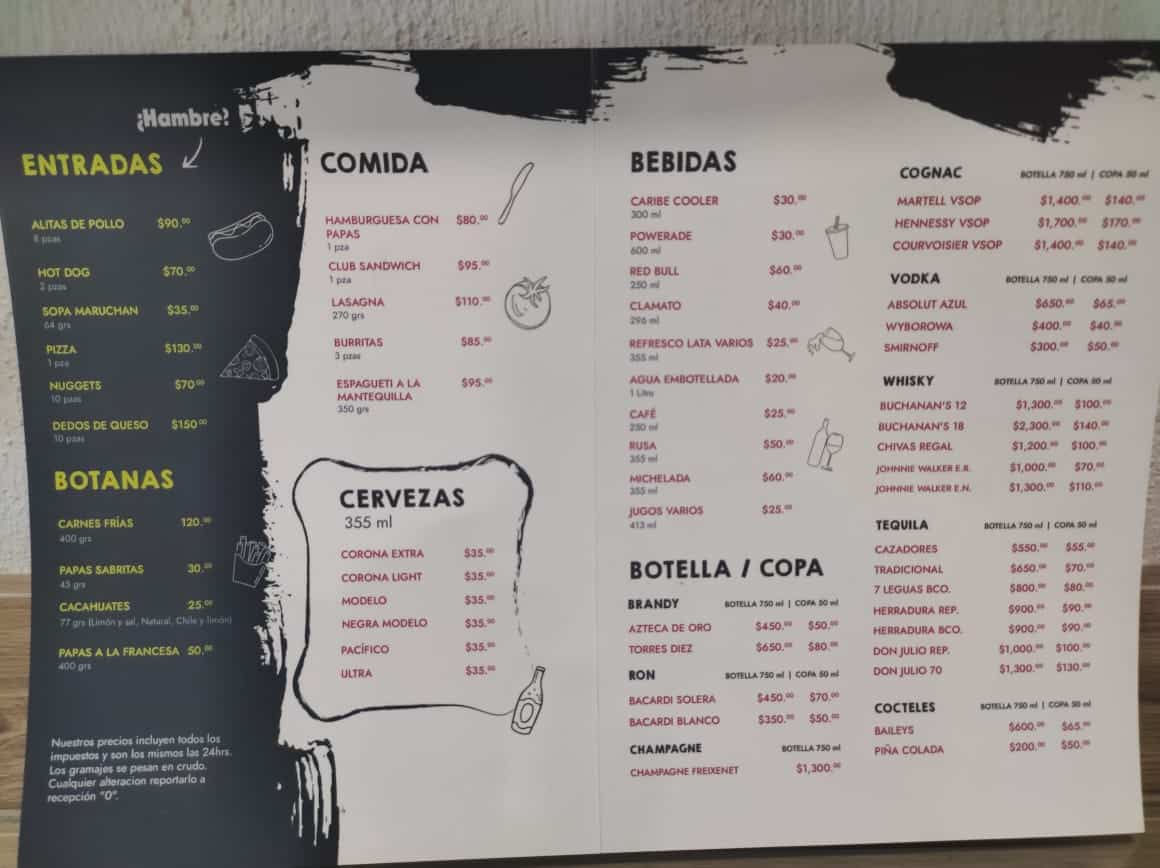 ¡Hambre?
ENTRADAS
ALITAS DE POLLO $90.00
8 pzas
HOT DOG $70.00
2 pzas
SOPA MARUCHAN $35.00
64 grs
PIZZA $130.00
1 pza
NUGGETS $70.00
10 pzas
DEDOS DE QUESO $150.00
10 pzas
BOTANAS
CARNES FRÍAS 120.00
400 grs
PAPAS SABRITAS 30.00
45 grs
CACAHUATES 25.00
77 grs (Limón y sal, Natural, Chile y limón)
PAPAS A LA FRANCESA 50.00
400 grs
Nuestros precios incluyen todos los
impuestos y son los mismos las 24hrs.
Los gramajes se pesan en crudo.
Cualquier alteracion reportarlo a
recepción "0".
COMIDA
HAMBURGUESA CON $80.00
PAPAS
1 pza
CLUB SANDWICH $95.00
1 pza
LASAGNA $110.00
270 grs
BURRITAS $85.00
3 pzas
ESPAGUETI A LA $95.00
MANTEQUILLA
350 grs
CERVEZAS
355 ml
CORONA EXTRA $35.00
CORONA LIGHT $35.00
MODELO $35.00
NEGRA MODELO $35.00
PACÍFICO $35.00
ULTRA $35.00
BEBIDAS
CARIBE COOLER $30.00
300 ml
POWERADE $30.00
600 ml
RED BULL $60.00
250 ml
CLAMATO $40.00
296 ml
REFRESCO LATA VARIOS $25.00
355 ml
AGUA EMBOTELLADA $20.00
1 Litro
CAFÉ $25.00
250 ml
RUSA $50.00
355 ml
MICHELADA $60.00
355 ml
JUGOS VARIOS $25.00
413 ml
BOTELLA / COPA
BRANDY BOTELLA 750 ml | COPA 50 ml
AZTECA DE ORO $450.00 $50.00
TORRES DIEZ $650.00 $80.00
RON BOTELLA 750 ml | COPA 50 ml
BACARDI SOLERA $450.00 $70.00
BACARDI BLANCO $350.00 $50.00
CHAMPAGNE BOTELLA 750 ml
CHAMPAGNE FREIXENET $1,300.00
COGNAC BOTELLA 750 ml | COPA 50 ml
MARTELL VSOP $1,400.00 $140.00
HENNESSY VSOP $1,700.00 $170.00
COURVOISIER VSOP $1,400.00 $140.00
VODKA BOTELLA 750 ml | COPA 50 ml
ABSOLUT AZUL $650.00 $65.00
WYBOROWA $400.00 $40.00
SMIRNOFF $300.00 $50.00
WHISKY BOTELLA 750 ml | COPA 50 ml
BUCHANAN'S 12 $1,300.00 $100.00
BUCHANAN'S 18 $2,300.00 $140.00
CHIVAS REGAL $1,200.00 $100.00
JOHNNIE WALKER E.R. $1,000.00 $70.00
JOHNNIE WALKER E.N. $1,300.00 $110.00
TEQUILA BOTELLA 750 ml | COPA 50 ml
CAZADORES $550.00 $55.00
TRADICIONAL $650.00 $70.00
7 LEGUAS BCO. $800.00 $80.00
HERRADURA REP. $900.00 $90.00
HERRADURA BCO. $900.00 $90.00
DON JULIO REP. $1,000.00 $100.00
DON JULIO 70 $1,300.00 $130.00
COCTELES BOTELLA 750 ml | COPA 50 ml
BAILEYS $600.00 $65.00
PIÑA COLADA $200.00 $50.00